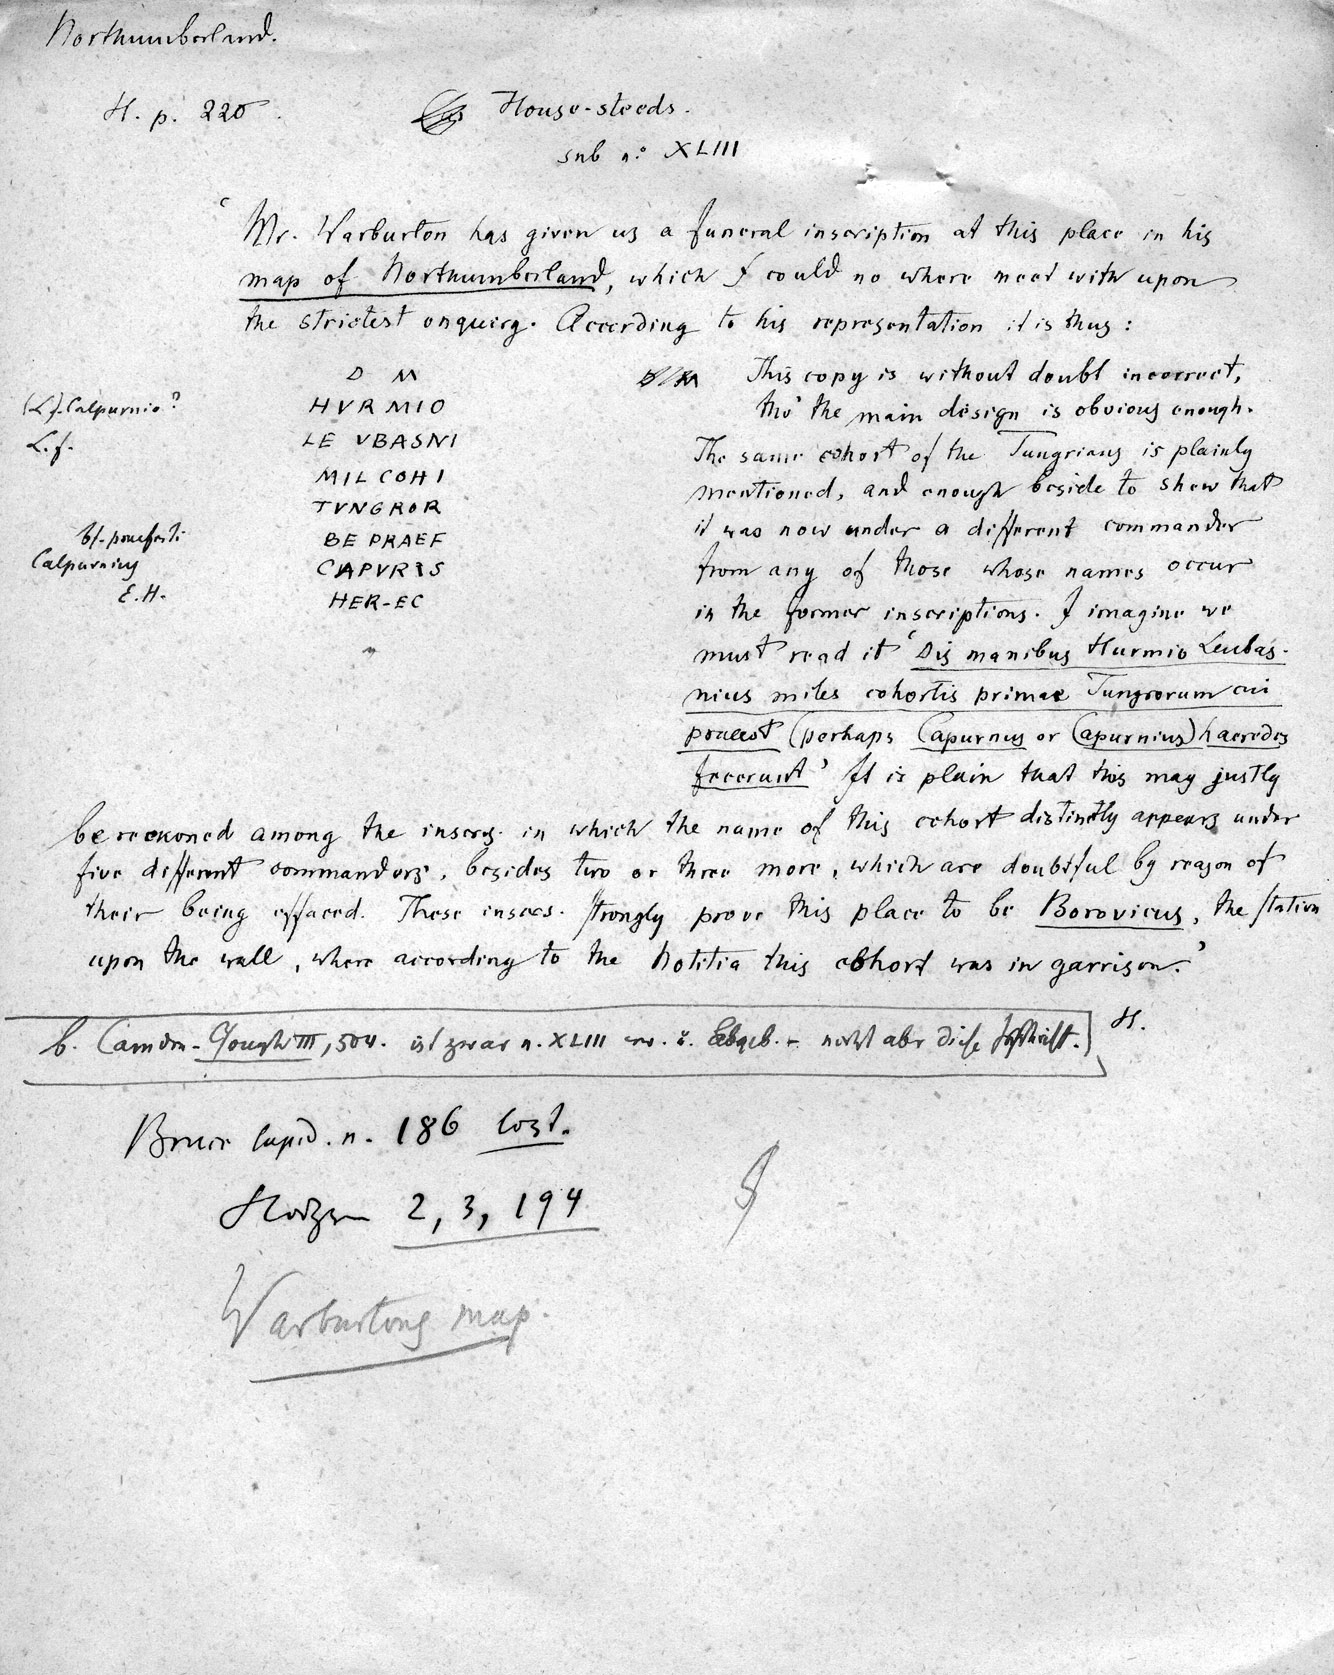 Northumberland.
H. p. 220.
House-steeds.
sub n.º XLIII
'Mr. Warburton has given us a funeral inscription at this place in his
map of Northumberland, which I could no where meet with upon
the strictest enquiry. According to his representation it is thus:
D M
HVRMIO
LE VBASNI
MIL COH I
TVNGROR
BE PRAEF
CAPVRIS
HER-EC
(L.)-Calpurnio?
L. f.
bf. praefecti
Calpurnius
E.H.
This copy is without doubt incorrect,
tho' the main design is obvious enough.
The same cohort of the Tungrians is plainly
mentioned, and enough beside to shew that
it was now under a different commander
from any of those whose names occur
in the former inscriptions. I imagine we
must read it 'Dis manibus Hurmio Leubas-
nius miles cohortis primae Tungrorum cui
praeest (perhaps Capurnus or Capurnius) haeredes
fecerunt' It is plain that this may justly
be reckoned among the inscrs. in which the name of this cohort distinctly appears under
five different commanders, besides two or three more, which are doubtful by reason of
their being effaced. These inscrs. strongly prove this place to be Borovicus, the station
upon the wall, where according to the Notitia this cohort was in garrison.'
b. Camden-Gough III, 504. ist zwar n. XLIII nicht aber diese Inschrift. H.
Bruce lapid. n. 186 lost.
Hodgson 2, 3, 194
Warburtons map.